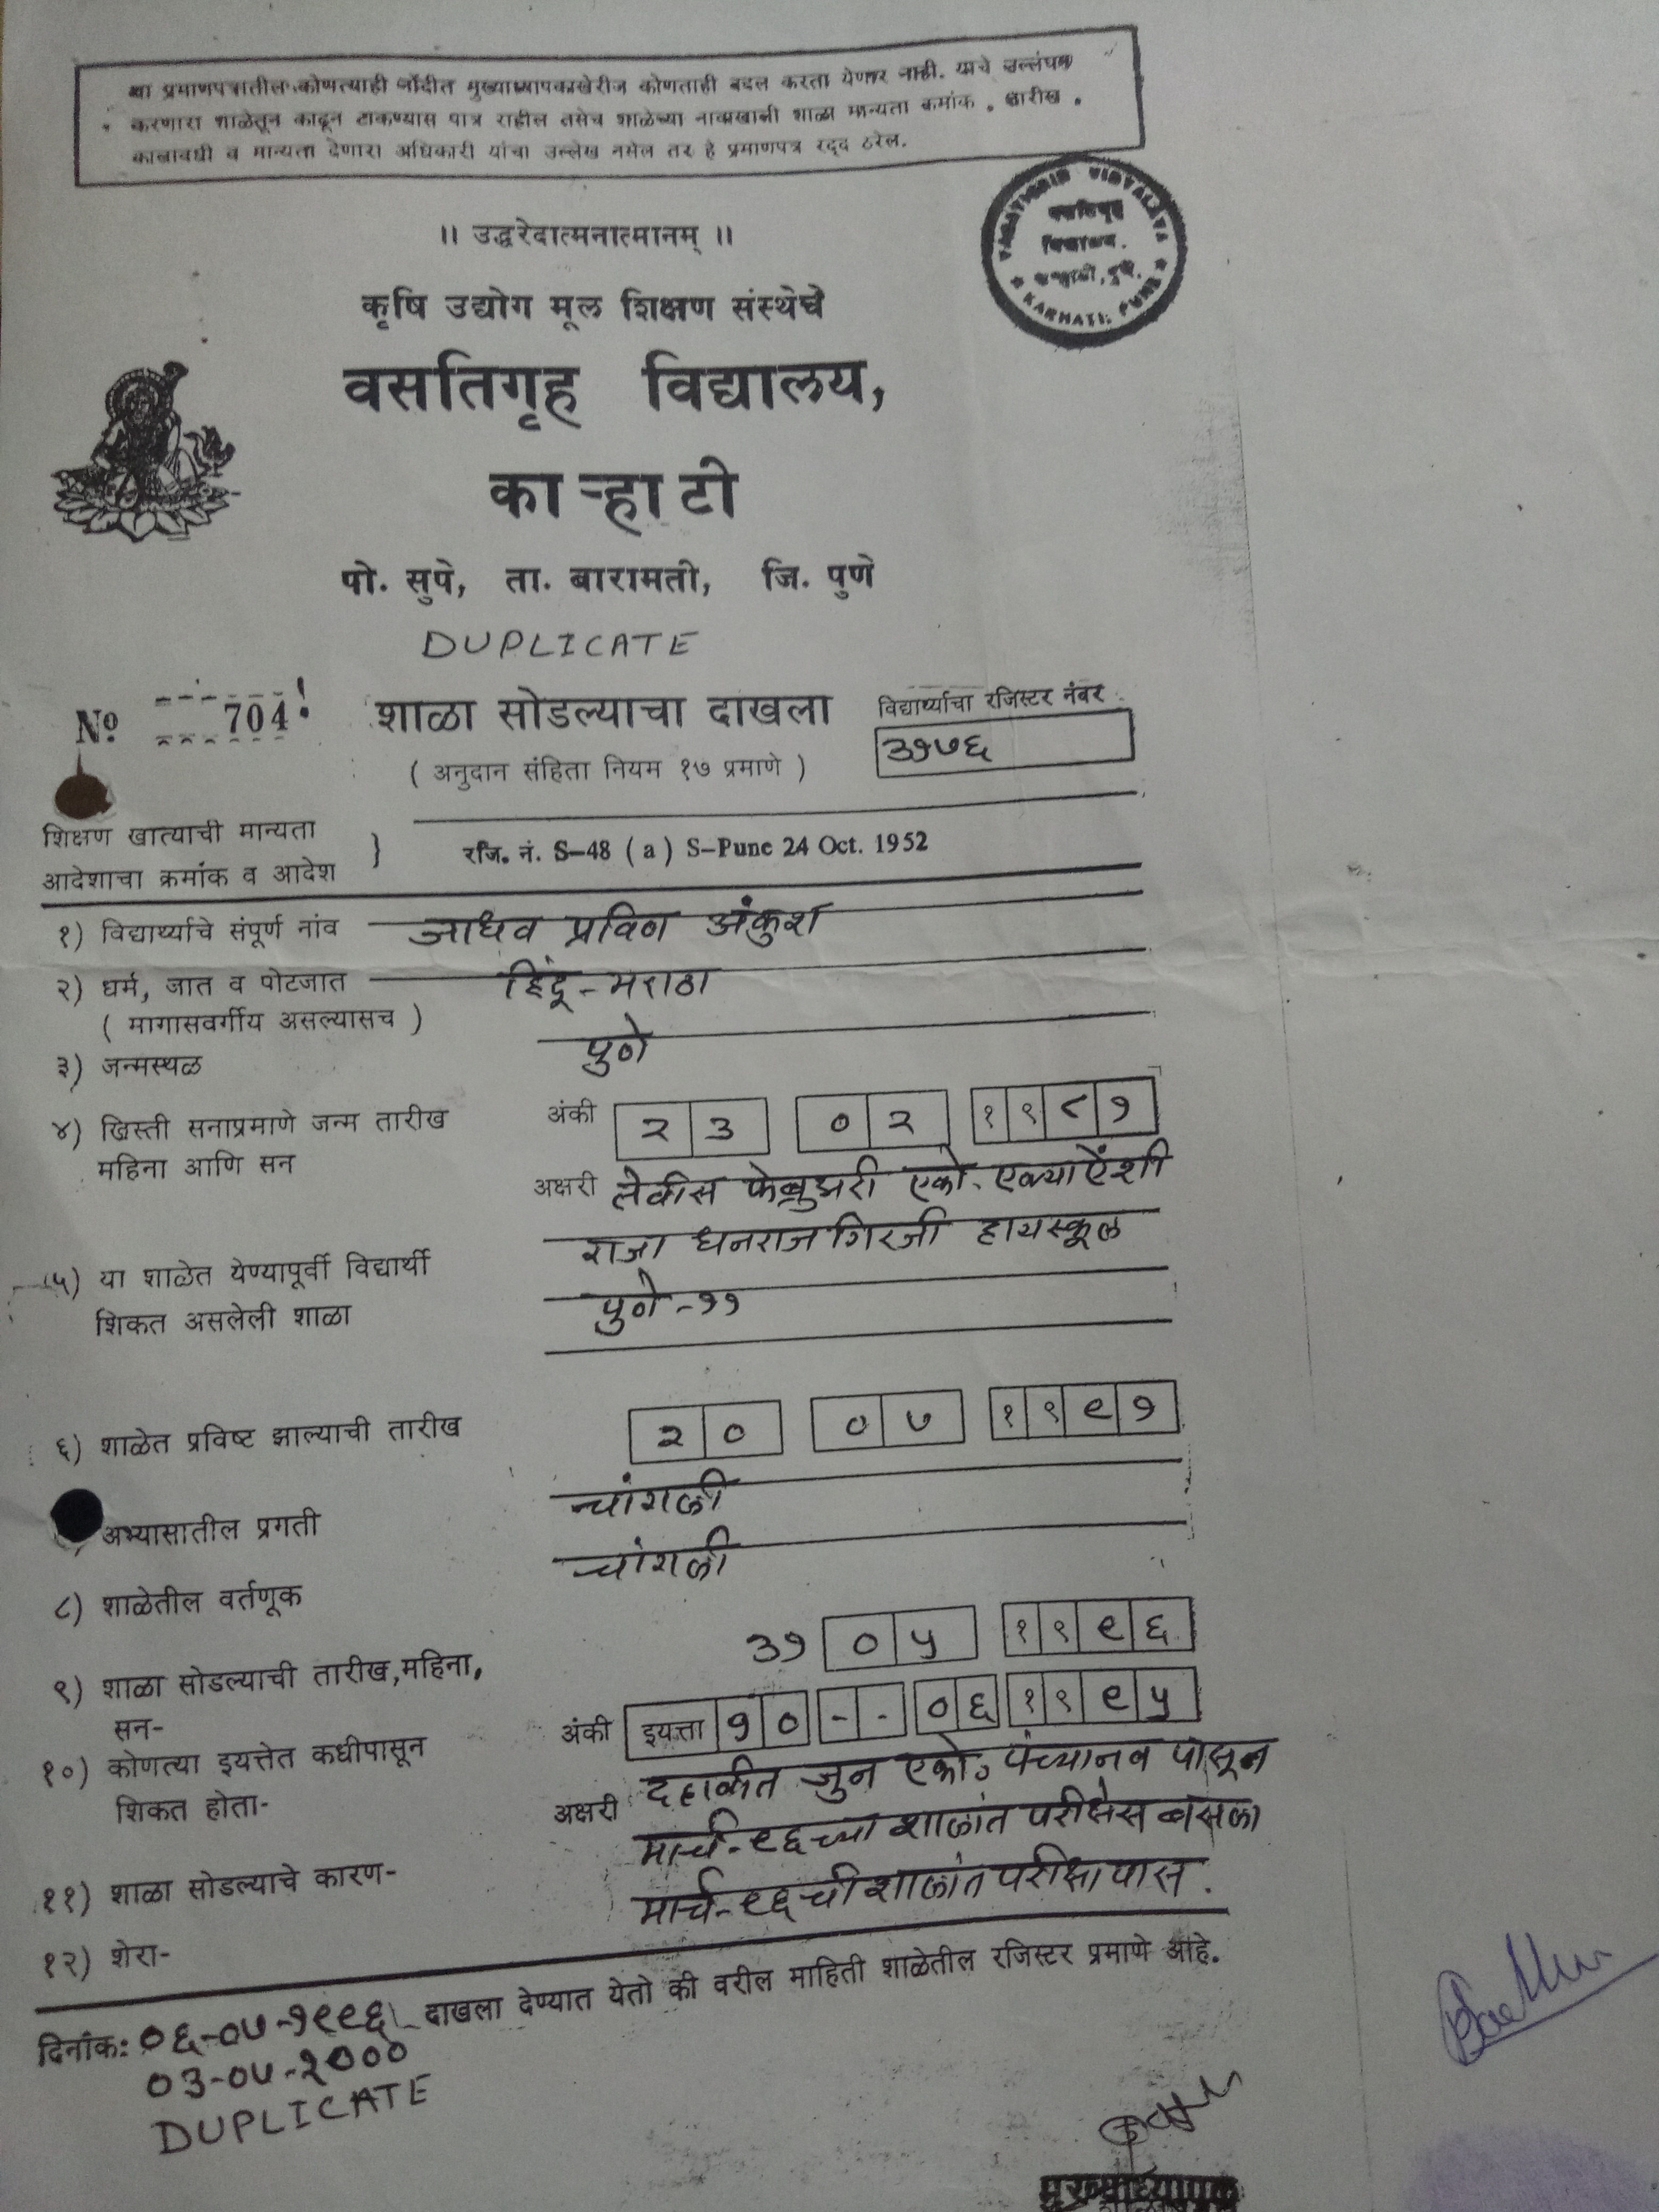 या प्रमाणपत्रातील कोणत्याही नोंदीत मुख्याध्यापकाखेरीज कोणताही बदल करता येणार नाही. याचे उल्लंघन
करणारा शाळेतून काढून टाकण्यास पात्र राहील तसेच शाळेच्या नावाखाली शाळा मान्यता क्रमांक . तारीख .
कालावधी व मान्यता देणारा अधिकारी यांचा उल्लेख नसेल तर हे प्रमाणपत्र रद्द ठरेल.
VASATIGRIH VIDYALAYA
वसतिगृह
विद्यालय.
KARHATI, PUNE
।। उद्धरेदात्मनात्मानम् ।।
कृषि उद्योग मूल शिक्षण संस्थेचे
वसतिगृह विद्यालय,
काऱ्हाटी
पो. सुपे, ता. बारामती, जि. पुणे
DUPLICATE
№ 704 शाळा सोडल्याचा दाखला विद्यार्थ्याचा रजिस्टर नंबर
( अनुदान संहिता नियम १७ प्रमाणे ) ३१७६
शिक्षण खात्याची मान्यता
आदेशाचा क्रमांक व आदेश } रजि. नं. S-48 ( a ) S-Pune 24 Oct. 1952
१) विद्यार्थ्याचे संपूर्ण नांव जाधव प्रविण अंकुश
२) धर्म, जात व पोटजात हिंदू - मराठा
( मागासवर्गीय असल्यासच )
३) जन्मस्थळ पुणे
४) ख्रिस्ती सनाप्रमाणे जन्म तारीख अंकी २३ ०२ १९८१
महिना आणि सन अक्षरी तेवीस फेब्रुवारी एको. एक्याऐंशी
५) या शाळेत येण्यापूर्वी विद्यार्थी राजा धनराज गिरजी हायस्कूल
शिकत असलेली शाळा पुणे - ११
६) शाळेत प्रविष्ट झाल्याची तारीख २० ०७ १९९१
अभ्यासातील प्रगती चांगली
८) शाळेतील वर्तणूक चांगली
९) शाळा सोडल्याची तारीख, महिना, ३१ ०५ १९९६
सन-
१०) कोणत्या इयत्तेत कधीपासून अंकी इयत्ता १० - - ०६ १९९५
शिकत होता- अक्षरी दहावीत जुन एको. पंच्यानव पासून
११) शाळा सोडल्याचे कारण- मार्च - ९६ च्या शालांत परीक्षेस बसला
१२) शेरा- मार्च - ९६ ची शालांत परीक्षा पास.
दाखला देण्यात येतो की वरील माहिती शाळेतील रजिस्टर प्रमाणे आहे.
दिनांक: ०६-०७-१९९६
०३-०७-२०००
DUPLICATE
मुख्याध्यापक